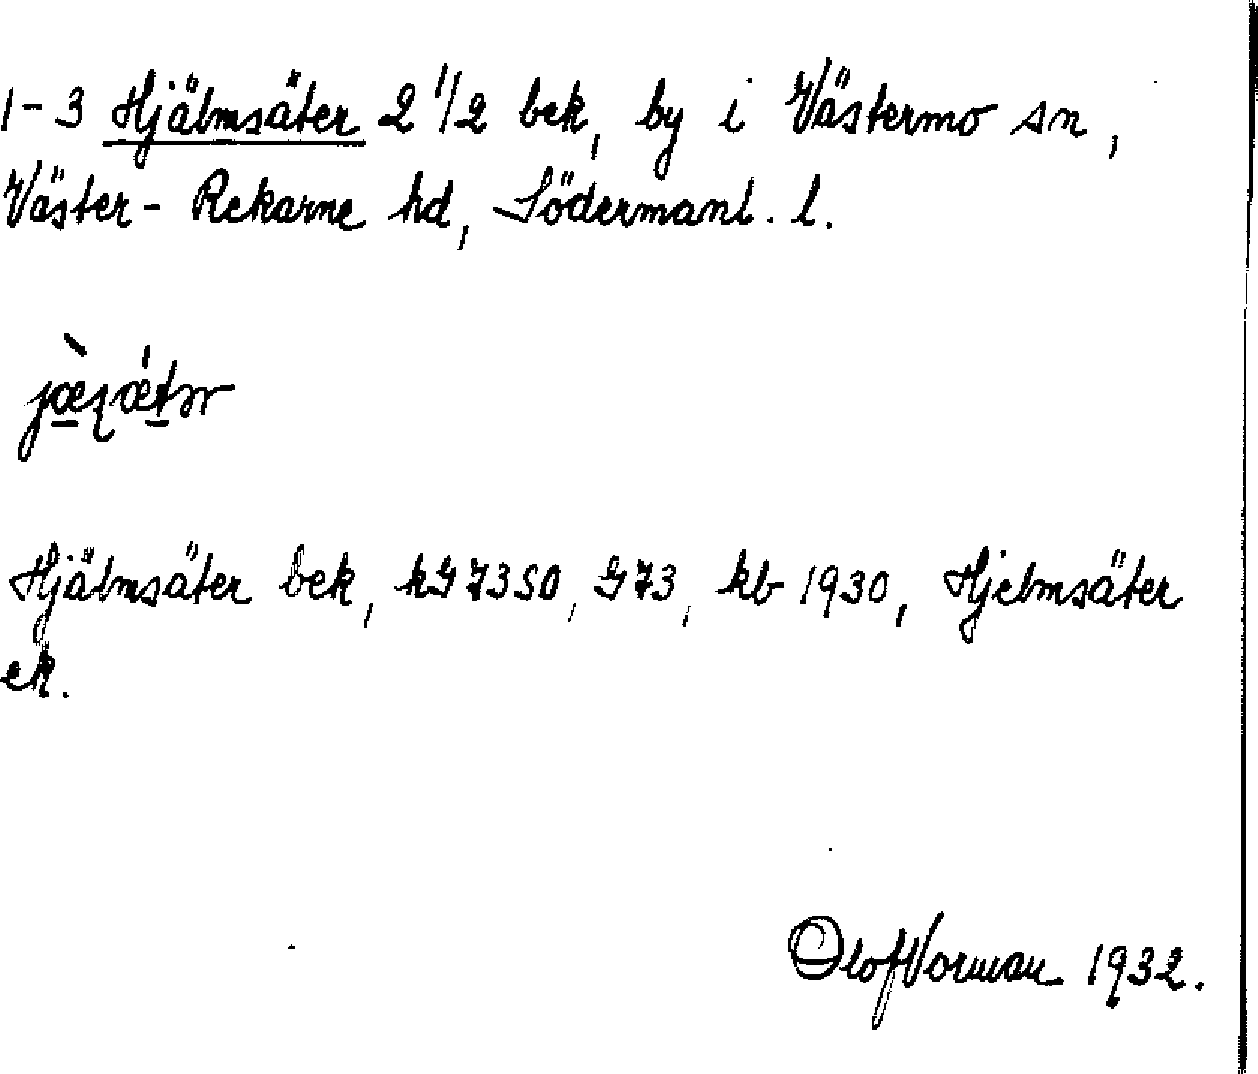 1-3 Hjälmsäter 2 1/2 bek, by i Västermo sn,
Väster-Rekarne hd, Södermanl. l.
Hjälmsäter bek, kG7350, G73, kb 1930, Hjelmsäter
ek.
Olof Vorman 1932.